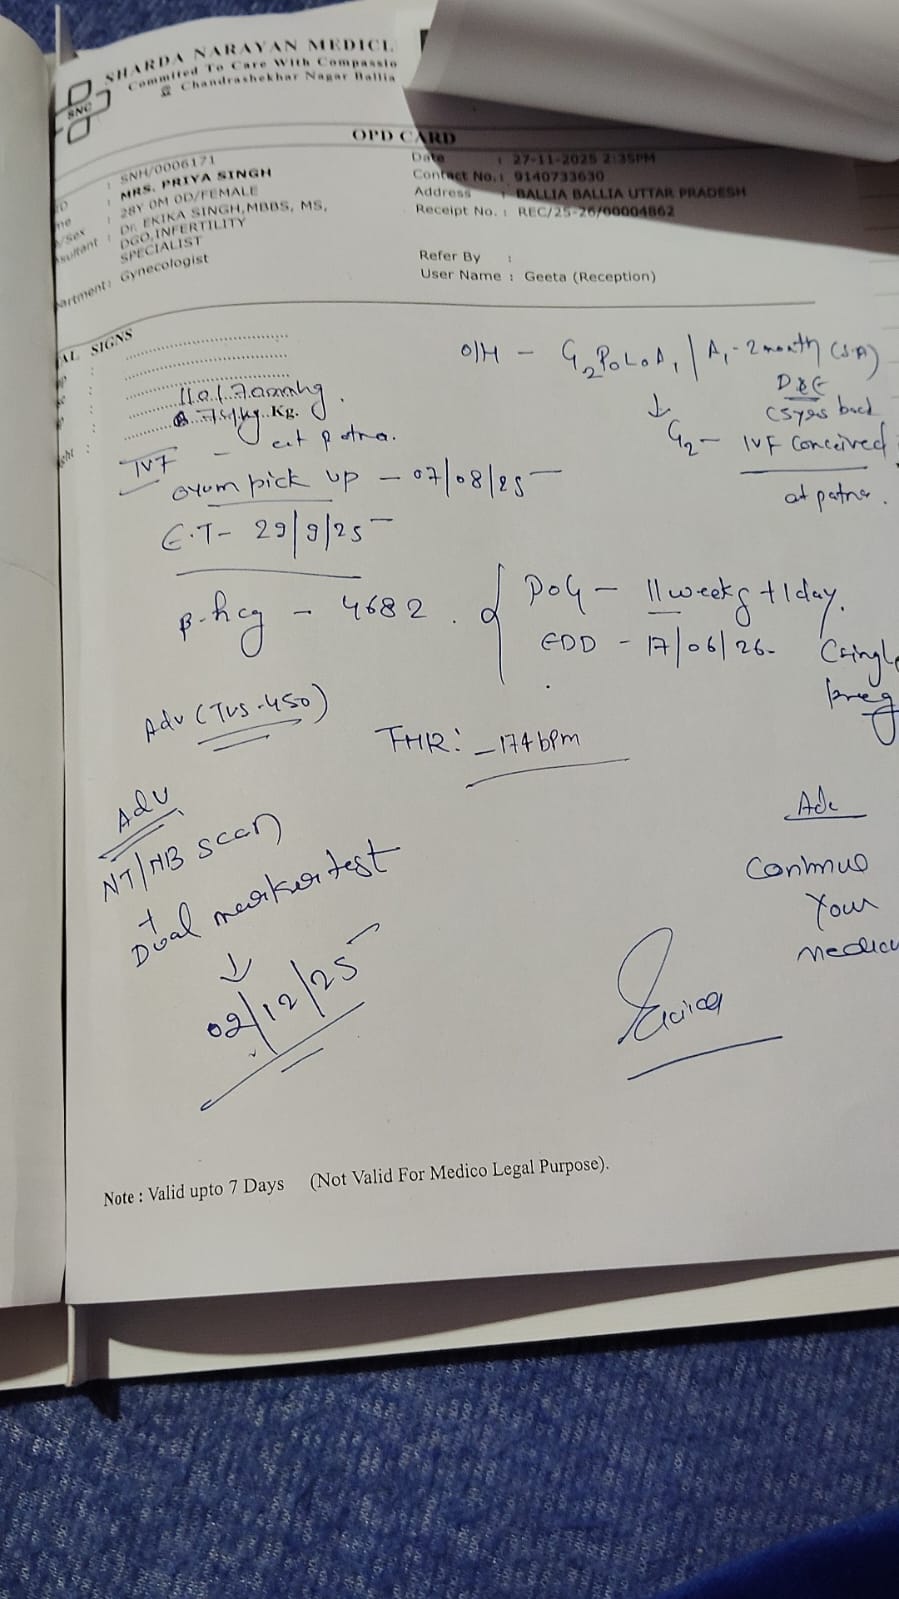 SHARDA NARAYAN MEDICL
Commited To Care With Compassio
@ Chandrashekhar Nagar Ballia
SNC
OPD CARD
: SNH/0006171
: MRS. PRIYA SINGH
: 28Y 0M 0D/FEMALE
: Dr. EKIKA SINGH,MBBS, MS,
DGO,INFERTILITY
SPECIALIST
artment: Gynecologist
Date : 27-11-2025 2:35PM
Contact No. : 9140733630
Address : BALLIA BALLIA UTTAR PRADESH
Receipt No. : REC/25-26/00004862
Refer By :
User Name : Geeta (Reception)
AL SIGNS
110/70mmhg.
Kg.
O/H - G2P0L0A1 / A1 - 2 month (S.A)
D&E
(5yrs back
↓
G2 - IVF Conceived
at patna.
IVF - at patna.
ovum pick up - 07/08/25
E.T - 29/9/25
β-hcg - 4682.
POG - 11 weeks + 1 day.
EDD - 17/06/26
(single
preg
Adv (TVS-450)
FHR: - 174 bpm
Adv
NT/NB scan
+
Dual marker test
↓
02/12/25
Adv
Continue
Your
Note : Valid upto 7 Days (Not Valid For Medico Legal Purpose).